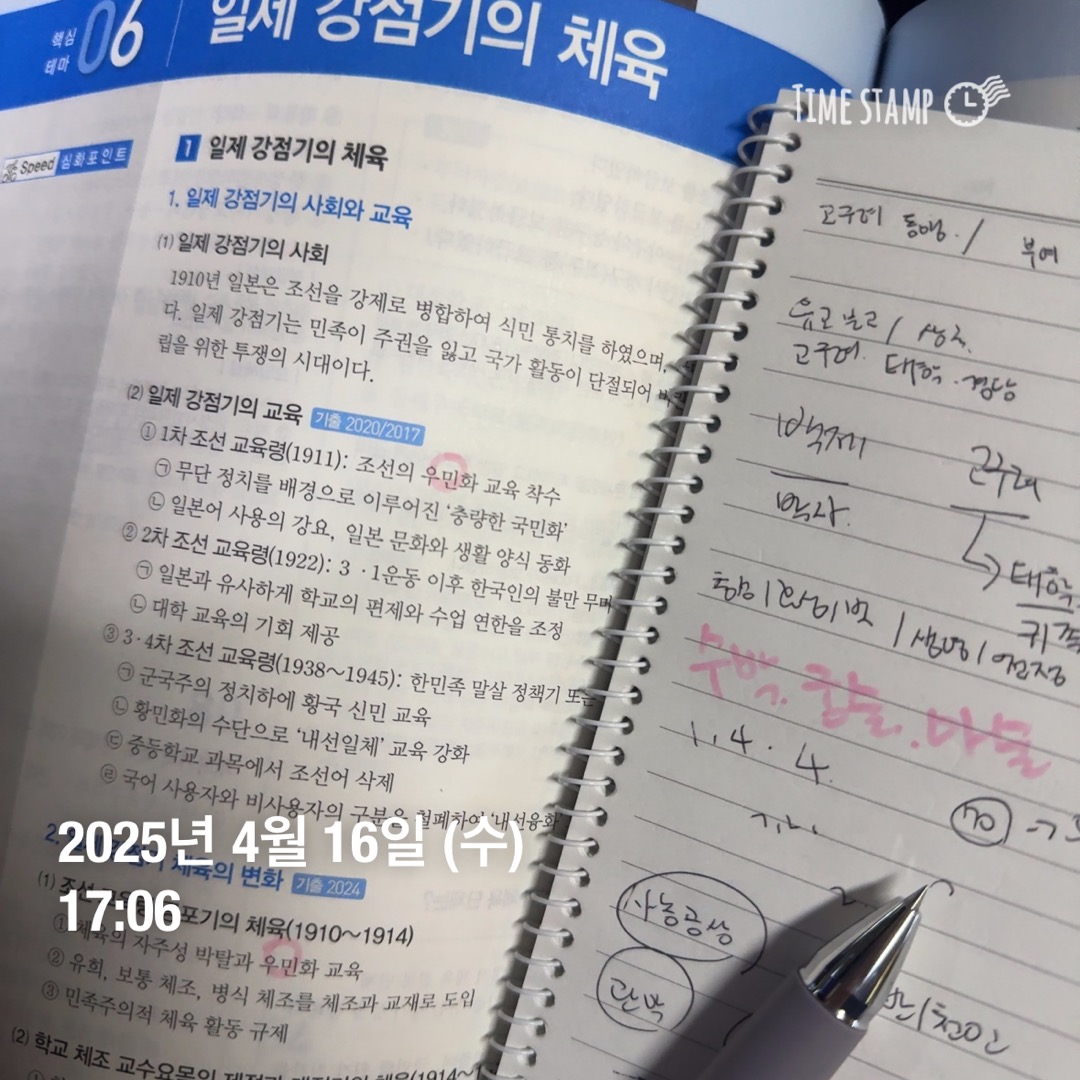 핵심
테마 06 일제 강점기의 체육
TIME STAMP
Speed 심화포인트
1 일제 강점기의 체육
1. 일제 강점기의 사회와 교육
(1) 일제 강점기의 사회
1910년 일본은 조선을 강제로 병합하여 식민 통치를 하였으며,
다. 일제 강점기는 민족이 주권을 잃고 국가 활동이 단절되어
립을 위한 투쟁의 시대이다.
(2) 일제 강점기의 교육 기출 2020/2017
① 1차 조선 교육령(1911): 조선의 우민화 교육 착수
㉠ 무단 정치를 배경으로 이루어진 '충량한 국민화'
㉡ 일본어 사용의 강요, 일본 문화와 생활 양식 동화
② 2차 조선 교육령(1922): 3·1운동 이후 한국인의 불만 무마
㉠ 일본과 유사하게 학교의 편제와 수업 연한을 조정
㉡ 대학 교육의 기회 제공
③ 3·4차 조선 교육령(1938~1945): 한민족 말살 정책기 또는
㉠ 군국주의 정치하에 황국 신민 교육
㉡ 황민화의 수단으로 '내선일체' 교육 강화
㉢ 중등학교 과목에서 조선어 삭제
㉣ 국어 사용자와 비사용자의 구분을 철폐하여 '내선융화'
2. 체육의 변화 기출 2024
(1) 조선 기의 체육(1910~1914)
① 체육의 자주성 박탈과 우민화 교육
② 유희, 보통 체조, 병식 체조를 체조과 교재로 도입
③ 민족주의적 체육 활동 규제
(2) 학교 체조 교수요목의
2025년 4월 16일 (수)
17:06
고구려 동맹 / 부여
고구려. 태학·경당
백제
박사.
태학
귀족
1. 4. 4.
70
사농공상
관박